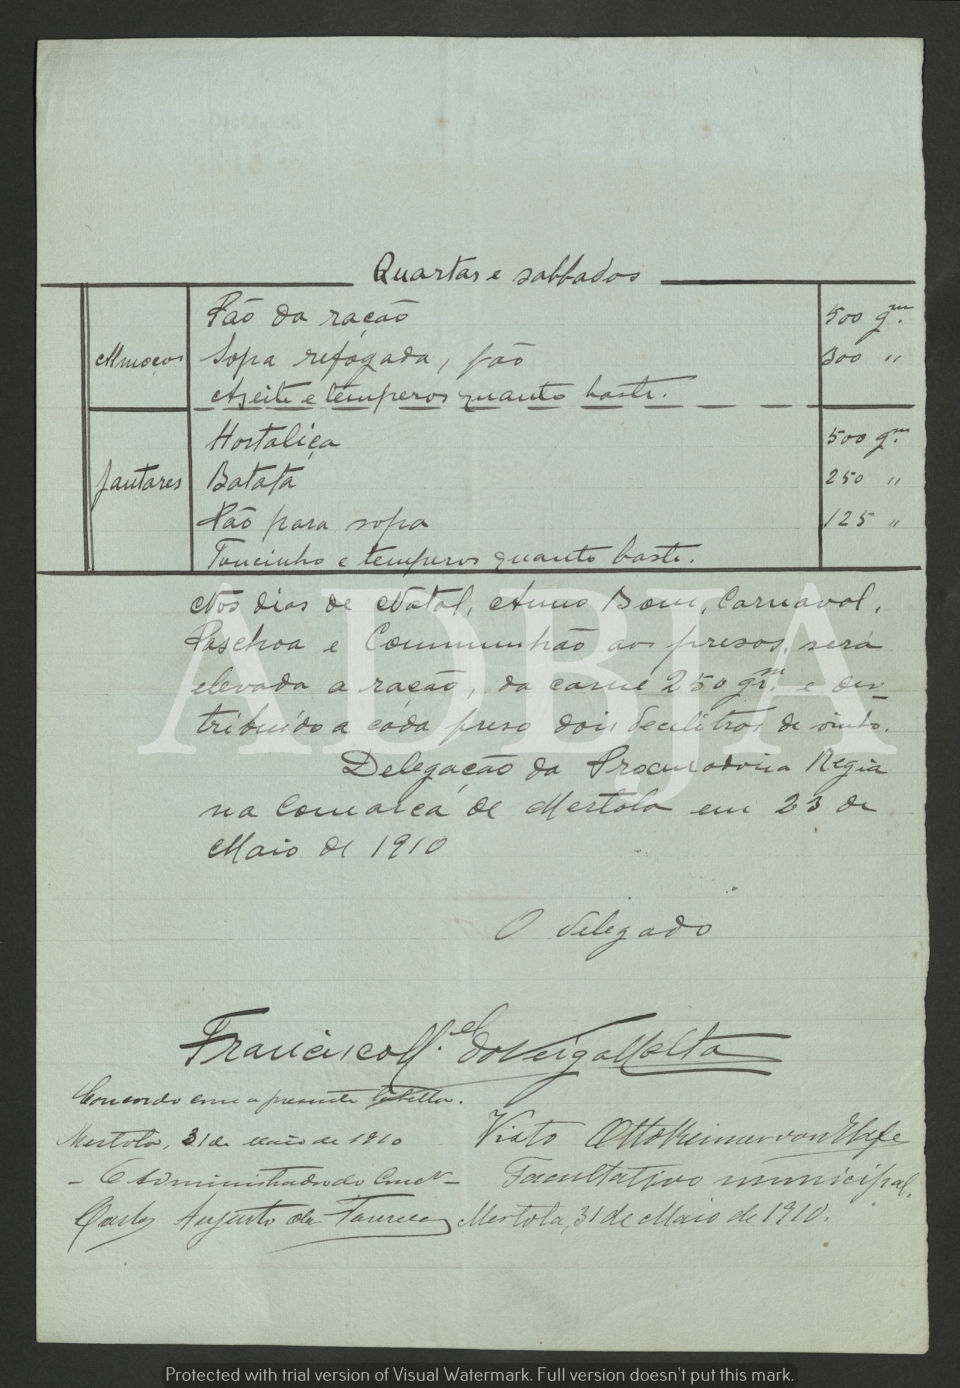 Quartas e sabbados
Pão da ração 500 gm.
Almoços Sopa refogada, pão 300 "
Azeite e temperos quanto baste.
Hortaliça 500 gm.
Jantares Batata 250 "
Pão para sopa 125 "
Toucinho e temperos quanto baste.
Nos dias de Natal, Anno Bom, Carnaval,
Paschoa e Communhão aos presos, será
elevada a ração, da carne 250 grm. e dis-
tribuido a cada preso dois decilitros de vinho.
Delegação da Procuradoria Regia
na Comarca de Mertola em 23 de
Maio de 1910
O Delegado
Francisco M.el da Veiga Malta
Concordo com a presente tabella.
Mertola, 31 de Maio de 1910
O Administrador do Conc.º
Carlos Augusto da
Visto Otto
Facultativo municipal.
Mertola, 31 de Maio de 1910.
ADBJA
Protected with trial version of Visual Watermark. Full version doesn't put this mark.